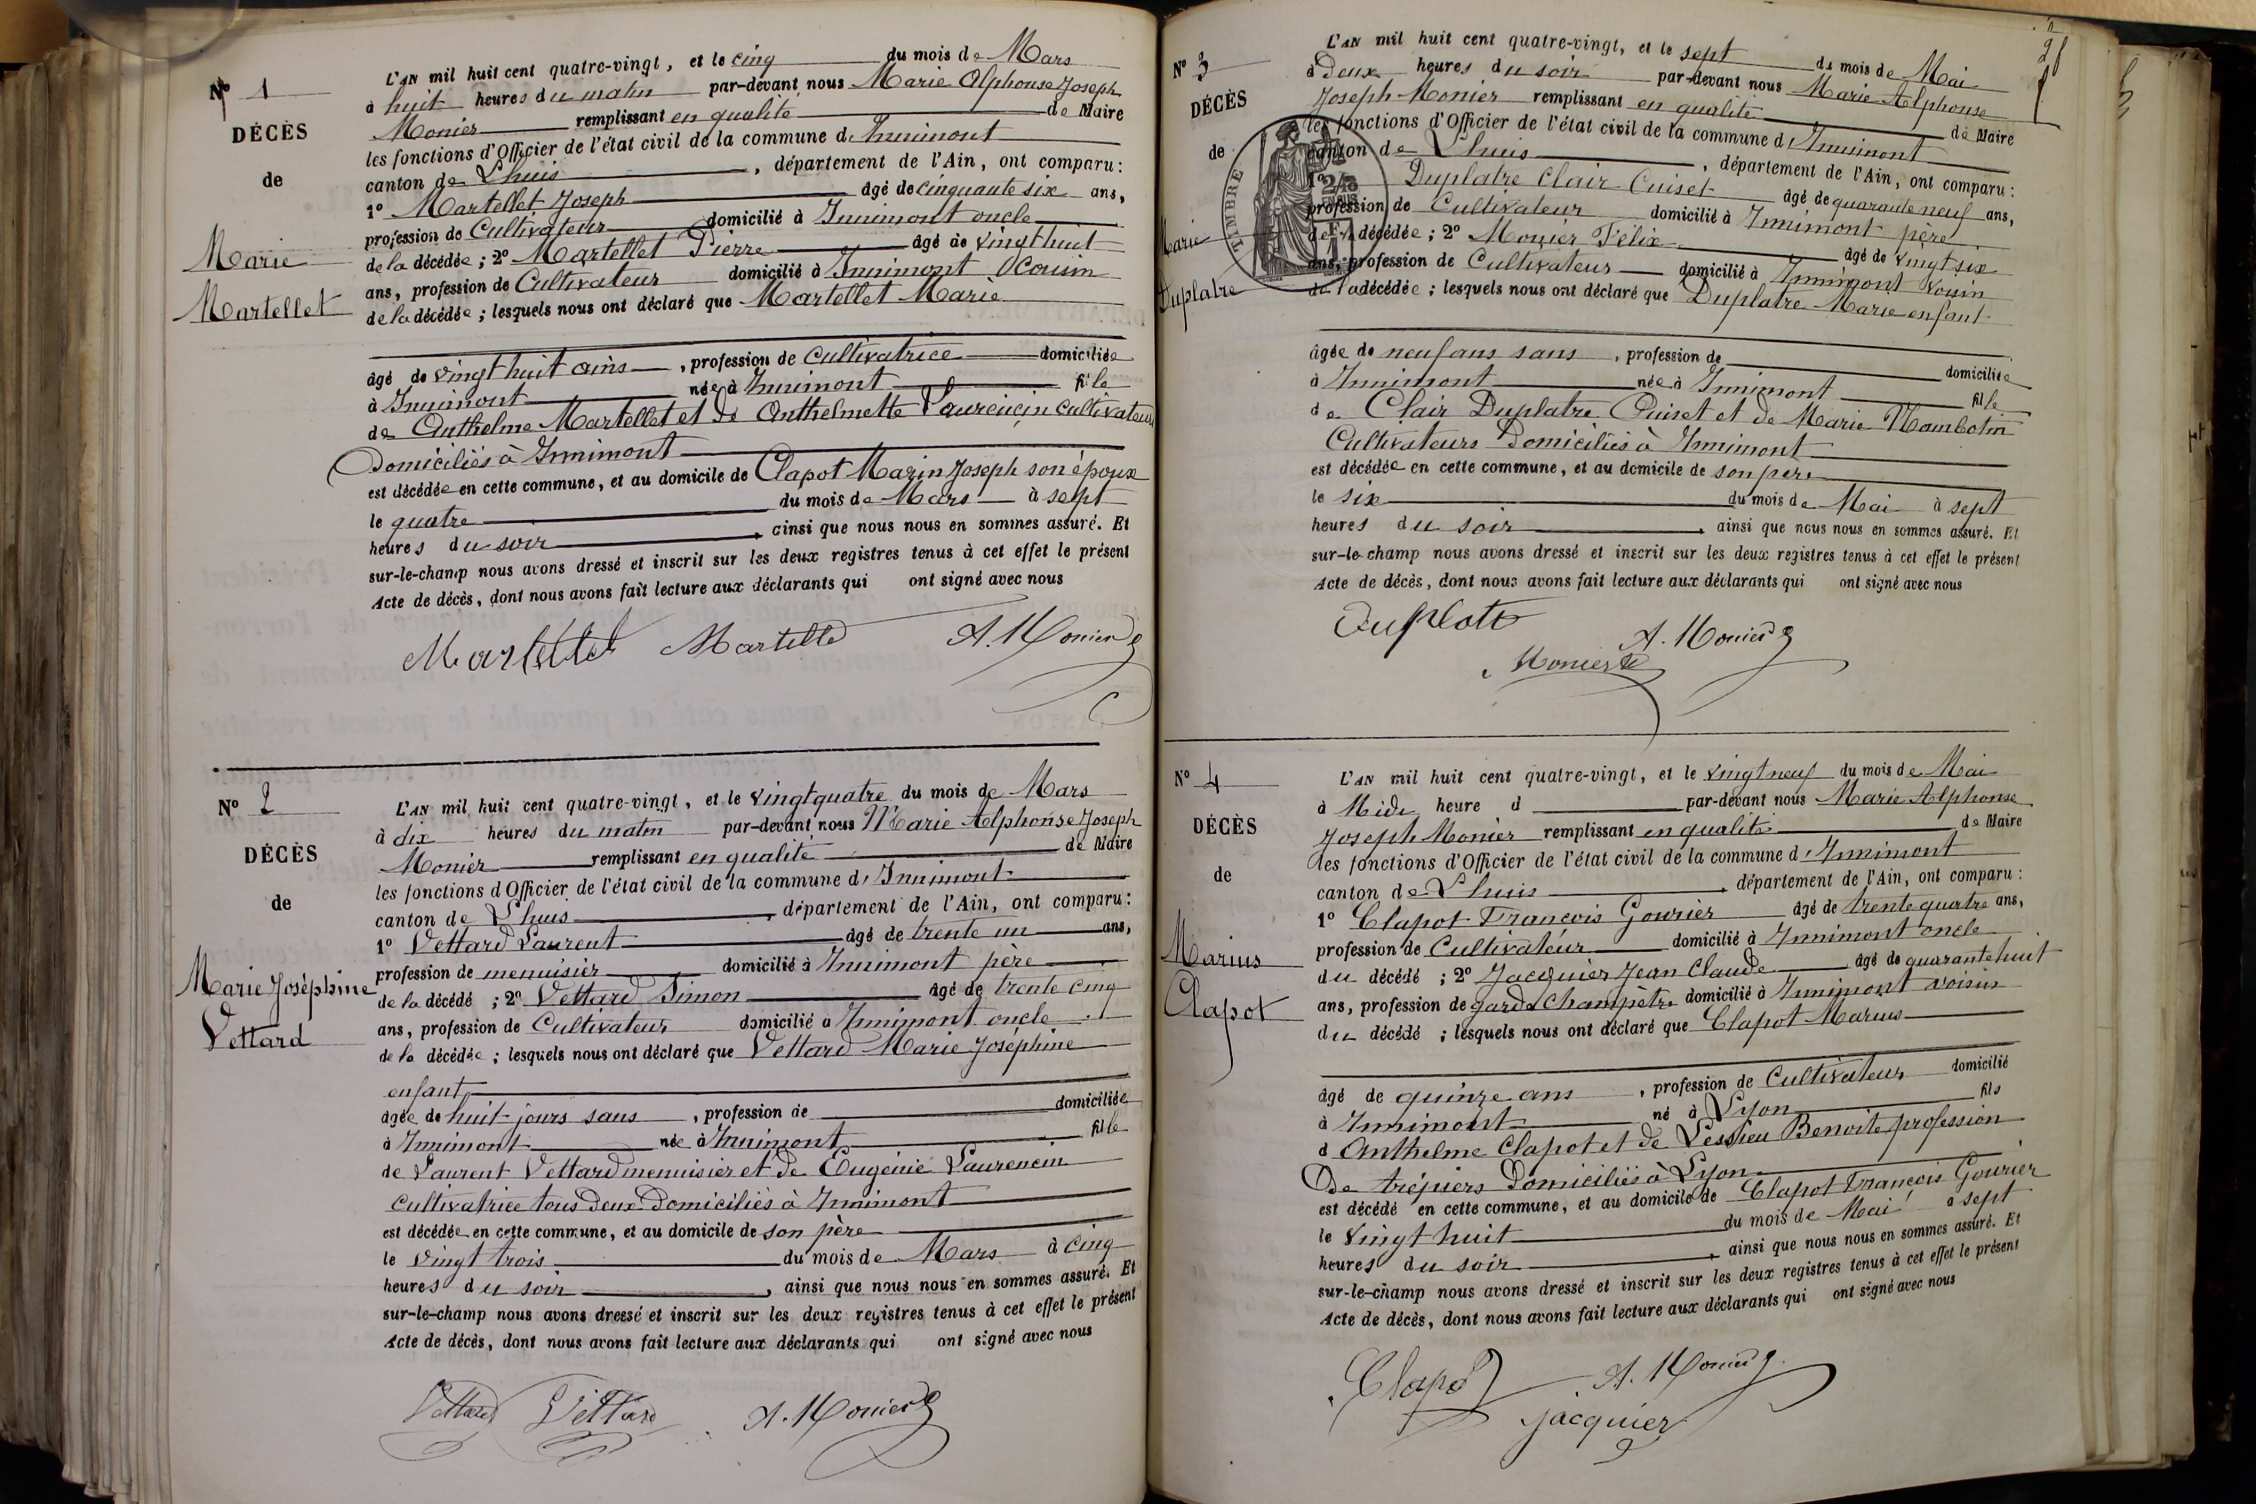 Nº 1
DÉCÈS
de
Marie
Martellet
L'AN mil huit cent quatre-vingt, et le cinq du mois de Mars
à huit heures du matin par-devant nous Marie Alphonse Joseph
Monier remplissant en qualité de Maire
les fonctions d'Officier de l'état civil de la commune d'Innimont
canton de Lhuis, département de l'Ain, ont comparu:
1º Martellet Joseph âgé de cinquante six ans,
profession de Cultivateur domicilié à Innimont oncle
de la décédée; 2º Martellet Pierre âgé de vingt huit
ans, profession de Cultivateur domicilié à Innimont cousin
de la décédée; lesquels nous ont déclaré que Martellet Marie
âgé de vingt huit ains, profession de cultivatrice domiciliée
à Innimont née à Innimont fille
de Anthelme Martellet et de Anthelmette Laurencin cultivateurs
Domiciliés à Innimont
est décédée en cette commune, et au domicile de Clapot Marin Joseph son époux
le quatre du mois de Mars à sept
heures du soir, ainsi que nous nous en sommes assuré. Et
sur-le-champ nous avons dressé et inscrit sur les deux registres tenus à cet effet le présent
Acte de décès, dont nous avons fait lecture aux déclarants qui ont signé avec nous
Martellet Martellet A. Monier
Nº 2
DÉCÈS
de
Marie Joséphine
Vettard
L'AN mil huit cent quatre-vingt, et le vingt quatre du mois de Mars
à dix heures du matin par-devant nous Marie Alphonse Joseph
Monier remplissant en qualité de Maire
les fonctions d'Officier de l'état civil de la commune d'Innimont
canton de Lhuis, département de l'Ain, ont comparu:
1º Vettard Laurent âgé de trente un ans,
profession de menuisier domicilié à Innimont père
de la décédé; 2º Vettard Simon âgé de trente cinq
ans, profession de Cultivateur domicilié à Innimont oncle
de la décédée; lesquels nous ont déclaré que Vettard Marie Joséphine
enfant
âgée de huit jours sans, profession de domiciliée
à Innimont née à Innimont fille
de Laurent Vettard menuisier et de Eugénie Laurencin
cultivatrice tous deux Domiciliés à Innimont
est décédée en cette commune, et au domicile de son père
le vingt trois du mois de Mars à cinq
heures du soir, ainsi que nous nous en sommes assuré. Et
sur-le-champ nous avons dressé et inscrit sur les deux registres tenus à cet effet le présent
Acte de décès, dont nous avons fait lecture aux déclarants qui ont signé avec nous
Vettard Vettard A. Monier
Nº 3
DÉCÈS
de
Marie
Duplatre
TIMBRE
L'AN mil huit cent quatre-vingt, et le sept du mois de Mai
à Deux heures du soir par-devant nous Marie Alphonse
Joseph Monier remplissant en qualité de Maire
les fonctions d'Officier de l'état civil de la commune d'Innimont
canton de Lhuis, département de l'Ain, ont comparu:
1º Duplatre Clair Cuiset âgé de quarante neuf ans,
profession de Cultivateur domicilié à Innimont père
de la décédée; 2º Monier Félix âgé de vingt six
ans, profession de Cultivateur domicilié à Innimont voisin
de la décédée; lesquels nous ont déclaré que Duplatre Marie enfant
âgée de neuf ans sans, profession de domiciliée
à Innimont née à Innimont fille
de Clair Duplatre Cuiset et de Marie Mambotin
Cultivateurs Domiciliés à Innimont
est décédée en cette commune, et au domicile de son père
le six du mois de Mai à sept
heures du soir, ainsi que nous nous en sommes assuré. Et
sur-le-champ nous avons dressé et inscrit sur les deux registres tenus à cet effet le présent
Acte de décès, dont nous avons fait lecture aux déclarants qui ont signé avec nous
Duplatre A. Monier
Monier
Nº 4
DÉCÈS
de
Marius
Clapot
L'AN mil huit cent quatre-vingt, et le vingt neuf du mois de Mai
à Midi heure d par-devant nous Marie Alphonse
Joseph Monier remplissant en qualité de Maire
les fonctions d'Officier de l'état civil de la commune d'Innimont
canton de Lhuis, département de l'Ain, ont comparu:
1º Clapot François Gourier âgé de trente quatre ans,
profession de Cultivateur domicilié à Innimont oncle
du décédé; 2º Jacquier Jean Claude âgé de quarante huit
ans, profession de garde champêtre domicilié à Innimont voisin
du décédé; lesquels nous ont déclaré que Clapot Marius
âgé de quinze ans, profession de Cultivateur domicilié
à Innimont né à Lyon fils
d Anthelme Clapot et de Lessieu Benoite profession
De trépiers Domiciliés à Lyon
est décédé en cette commune, et au domicile de Clapot François Gourier
le vingt huit du mois de Mai à sept
heures du soir, ainsi que nous nous en sommes assuré. Et
sur-le-champ nous avons dressé et inscrit sur les deux registres tenus à cet effet le présent
Acte de décès, dont nous avons fait lecture aux déclarants qui ont signé avec nous
Clapot A. Monier
jacquier